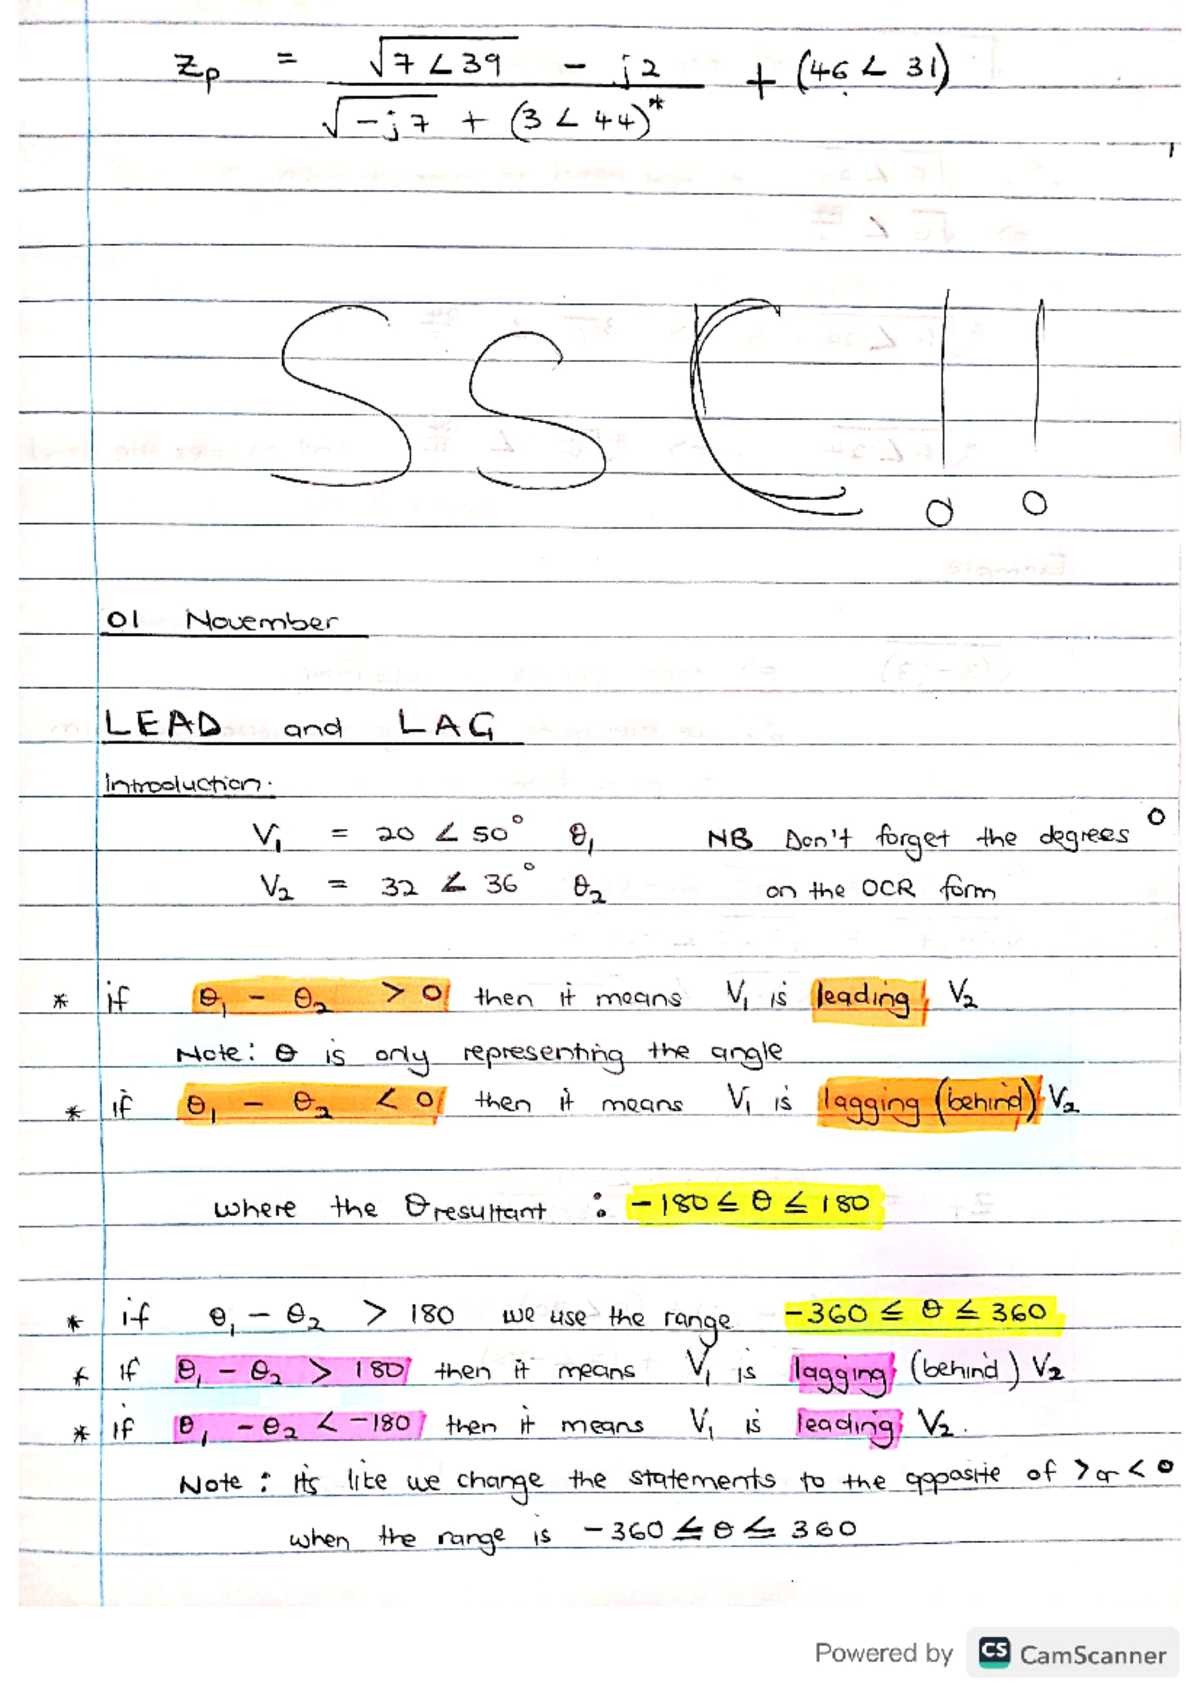 Zp = √7∠39 - j2 / √-j7 + (3∠44)* + (46∠31)
SSC!!
01 November
LEAD and LAG
Introduction.
V₁ = 20 ∠ 50° θ₁ NB Don't forget the degrees °
V₂ = 32 ∠ 36° θ₂ on the OCR form
* if θ₁ - θ₂ > 0 then it means V₁ is leading V₂
Note: θ is only representing the angle
* if θ₁ - θ₂ < 0 then it means V₁ is lagging (behind) V₂
where the θresultant : -180 ≤ θ ≤ 180
* if θ₁ - θ₂ > 180 we use the range -360 ≤ θ ≤ 360
* if θ₁ - θ₂ > 180 then it means V₁ is lagging (behind) V₂
* if θ₁ - θ₂ < -180 then it means V₁ is leading V₂.
Note : it's like we change the statements to the opposite of > or < 0
when the range is -360 ≤ θ ≤ 360
Powered by CS CamScanner